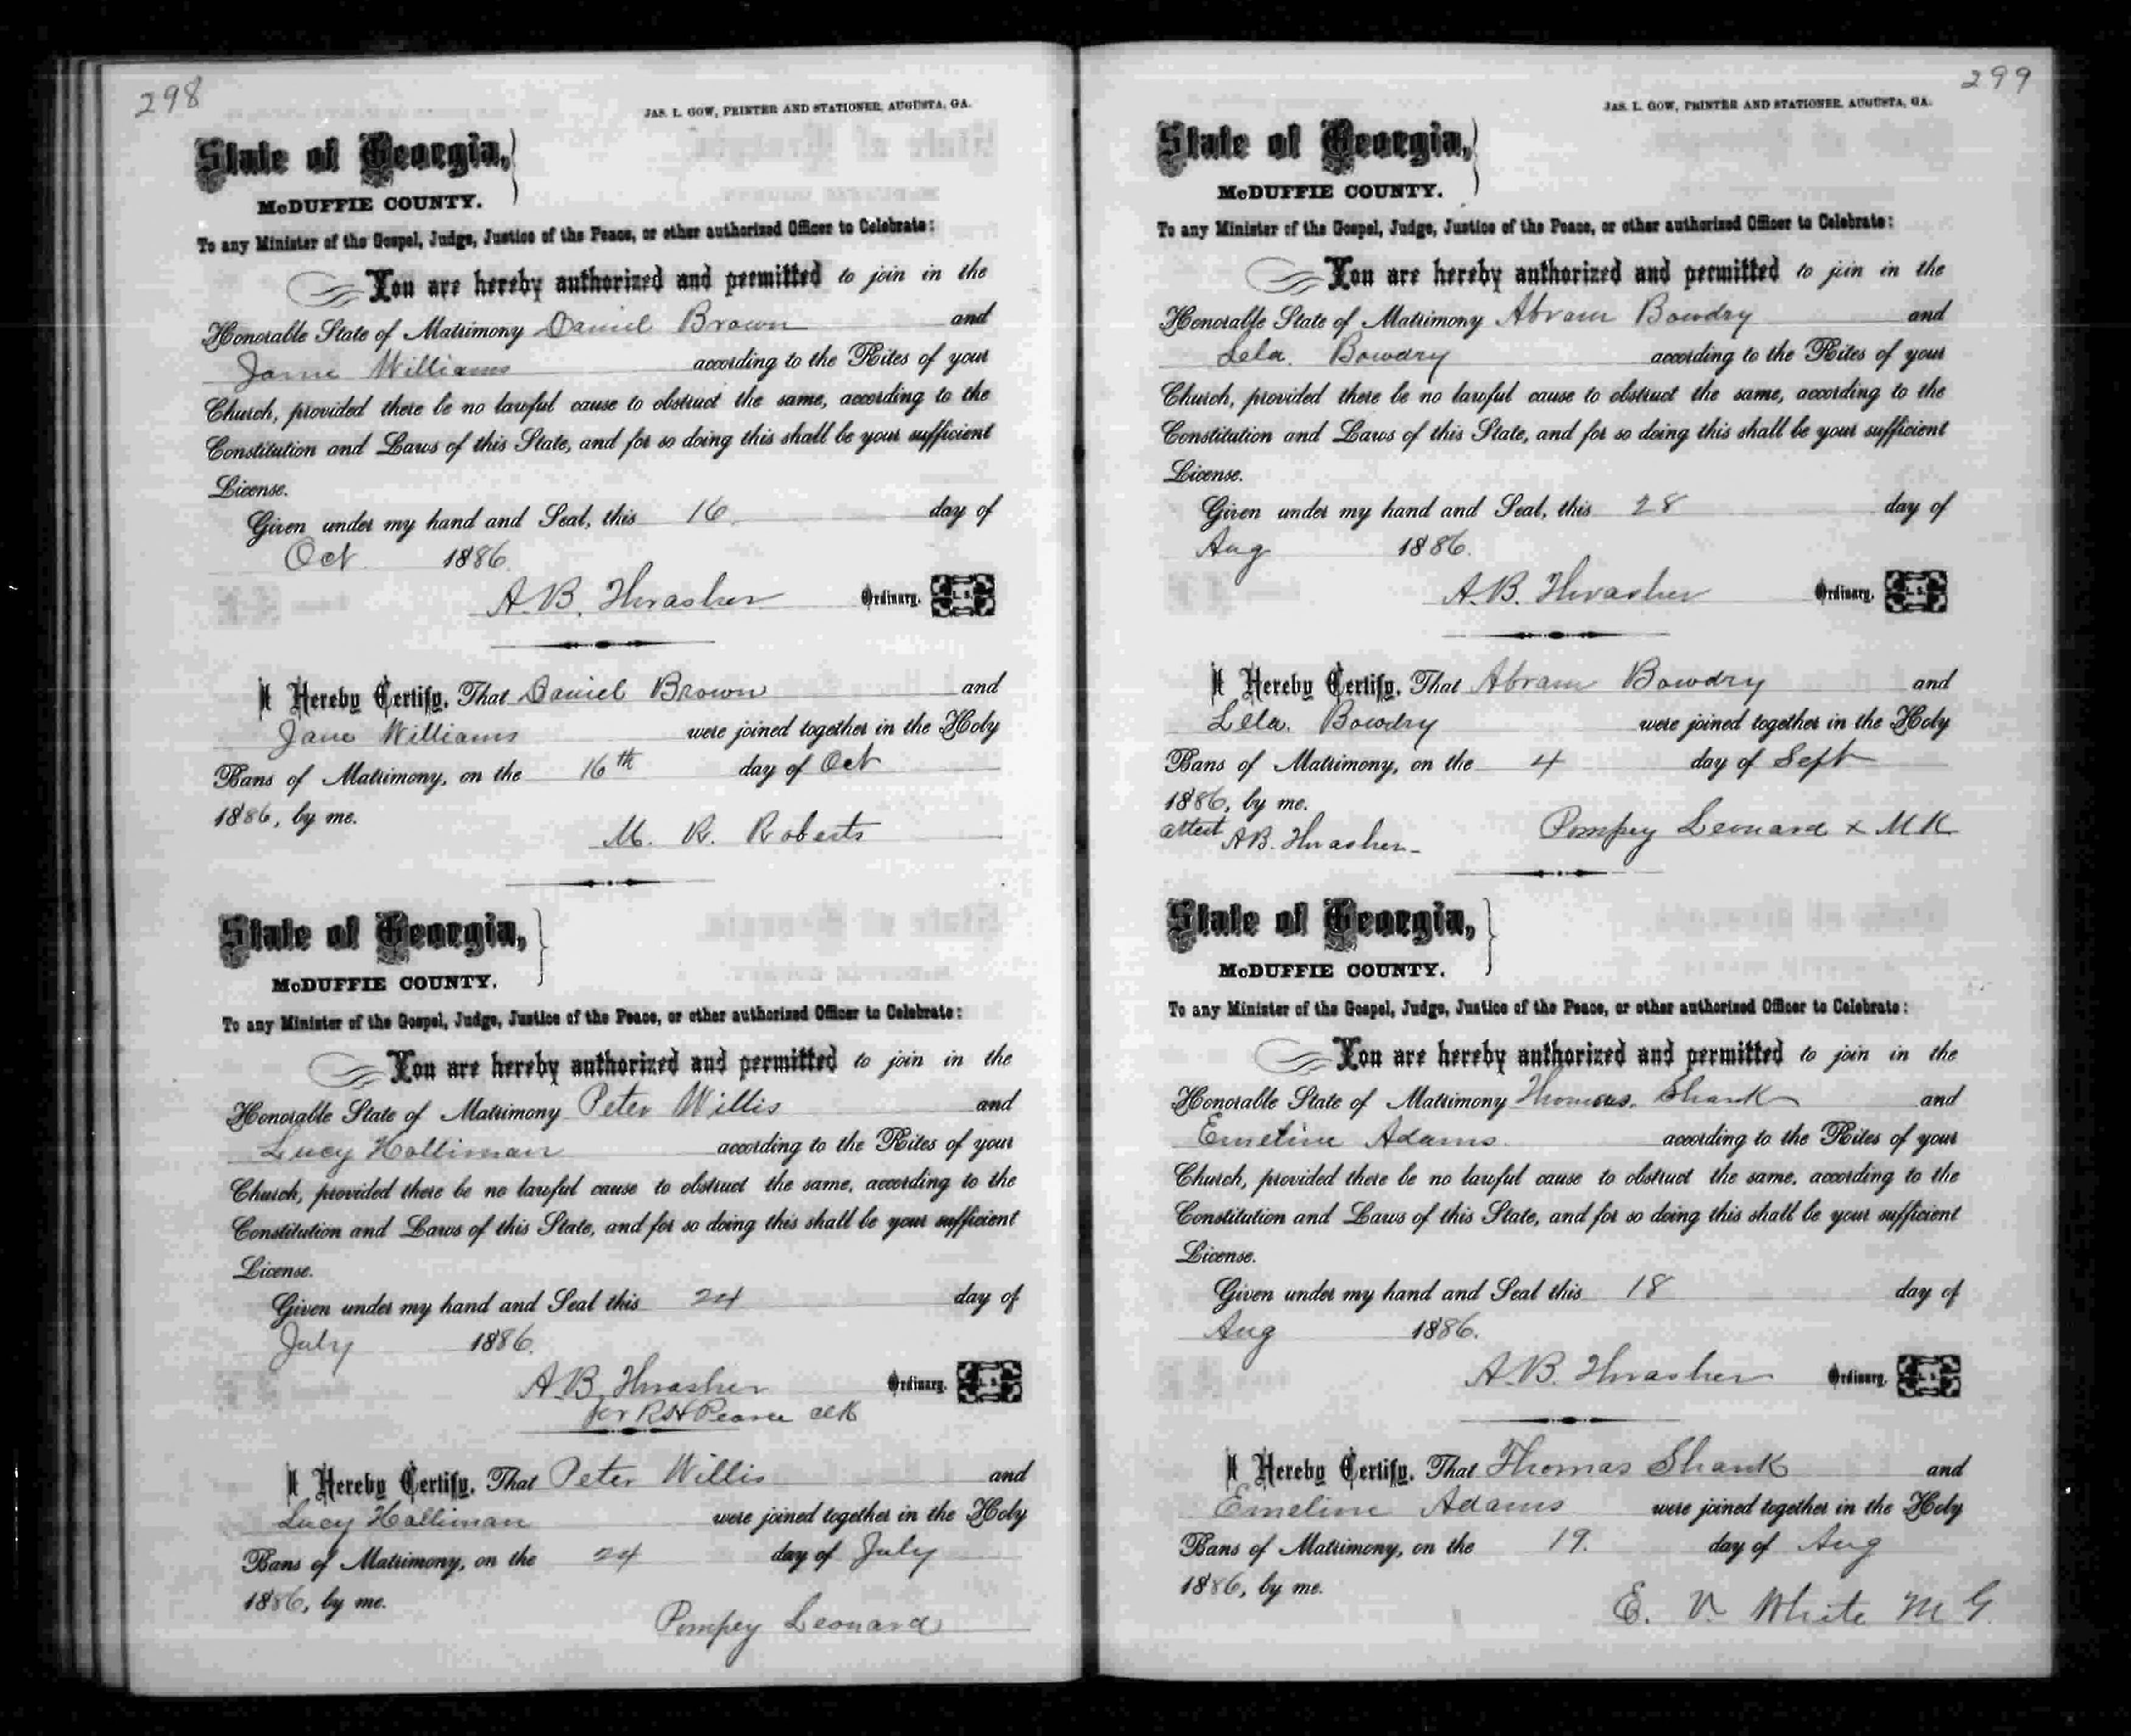 298
JAS. L. GOW, PRINTER AND STATIONER, AUGUSTA, GA.
State of Georgia,
McDUFFIE COUNTY.
To any Minister of the Gospel, Judge, Justice of the Peace, or other authorized Officer to Celebrate:
You are hereby authorized and permitted to join in the
Honorable State of Matrimony Daniel Brown and
Jane Williams according to the Rites of your
Church, provided there be no lawful cause to obstruct the same, according to the
Constitution and Laws of this State, and for so doing this shall be your sufficient
License.
Given under my hand and Seal, this 16 day of
Oct 1886.
A. B. Thrasher Ordinary. L. S.
I Hereby Certify, That Daniel Brown and
Jane Williams were joined together in the Holy
Bans of Matrimony, on the 16th day of Oct
1886, by me.
M. R. Roberts
State of Georgia,
McDUFFIE COUNTY.
To any Minister of the Gospel, Judge, Justice of the Peace, or other authorized Officer to Celebrate:
You are hereby authorized and permitted to join in the
Honorable State of Matrimony Peter Willis and
Lucy Holliman according to the Rites of your
Church, provided there be no lawful cause to obstruct the same, according to the
Constitution and Laws of this State, and for so doing this shall be your sufficient
License.
Given under my hand and Seal this 24 day of
July 1886.
A. B. Thrasher Ordinary. L. S.
for R H Pearce clk
I Hereby Certify, That Peter Willis and
Lucy Holliman were joined together in the Holy
Bans of Matrimony, on the 24 day of July
1886, by me.
Pompey Leonard
299
JAS. L. GOW, PRINTER AND STATIONER, AUGUSTA, GA.
State of Georgia,
McDUFFIE COUNTY.
To any Minister of the Gospel, Judge, Justice of the Peace, or other authorized Officer to Celebrate:
You are hereby authorized and permitted to join in the
Honorable State of Matrimony Abram Bowdry and
Lela Bowdry according to the Rites of your
Church, provided there be no lawful cause to obstruct the same, according to the
Constitution and Laws of this State, and for so doing this shall be your sufficient
License.
Given under my hand and Seal, this 28 day of
Aug 1886.
A. B. Thrasher Ordinary. L. S.
I Hereby Certify, That Abram Bowdry and
Lela Bowdry were joined together in the Holy
Bans of Matrimony, on the 4 day of Sept
1886, by me.
attest A B. Thrasher Pompey Leonard x MK
State of Georgia,
McDUFFIE COUNTY.
To any Minister of the Gospel, Judge, Justice of the Peace, or other authorized Officer to Celebrate:
You are hereby authorized and permitted to join in the
Honorable State of Matrimony Thomas Shank and
Emeline Adams according to the Rites of your
Church, provided there be no lawful cause to obstruct the same, according to the
Constitution and Laws of this State, and for so doing this shall be your sufficient
License.
Given under my hand and Seal this 18 day of
Aug 1886.
A. B. Thrasher Ordinary. L. S.
I Hereby Certify, That Thomas Shank and
Emeline Adams were joined together in the Holy
Bans of Matrimony, on the 19. day of Aug
1886, by me.
E. V. White M G.